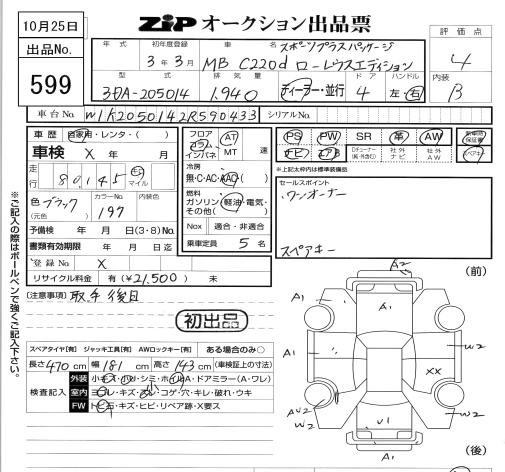 10月25日
出品No.
599
ZIP オークション出品票
年式 初年度登録 車名 スポーツプラスパッケージ
3年3月 MB C220d ローレウスエディション
型式 排気量 ドア ハンドル
3DA-205014 1.940 ディーラー・並行 4 左・右
評価点
4
内装
B
車台No. W1K2050142R590433 シリアルNo.
車歴 自家用・レンタ・( )
車検 X 年 月
走行 80,145 km マイル
色 ブラック
(元色)
カラーNo. 197
内装色
予備検 年 月 日(3・8)No.
書類有効期限 年 月 日迄
登録No. X
リサイクル料金 有(¥21,500) 未
フロア コラム インパネ AT MT 速
冷房 無・C・AC・AAC( )
燃料
ガソリン・軽油・電気・
その他( )
Nox 適合・非適合
乗車定員 5 名
PS PW SR 革 AW 新車時保証書
ナビ エアB Dチューナー(純・外含む) 社外ナビ 社外AW スペアキー
※上記太枠内は標準装備品
セールスポイント
ワンオーナー
スペアキー
(注意事項) 取手後日
初出品
スペアタイヤ[有] ジャッキ工具[有] AWロックキー[有] ある場合のみ○
長さ 470 cm 幅 181 cm 高さ 143 cm (車検証上の寸法)
検査記入
外装 小キズ・小凹・シミ・ホイルA・ドアミラー(A・ワレ)
室内 ヨゴレ・キズ・スレ・コゲ・穴・キレ・破れ・ウキ
FW トビ石・キズ・ヒビ・リペア跡・X要ス
※ご記入の際はボールペンで強くご記入下さい。
(前)
A2
A1
A1
A1
W2
XX
AU2
W2
U1
W2
A1
(後)